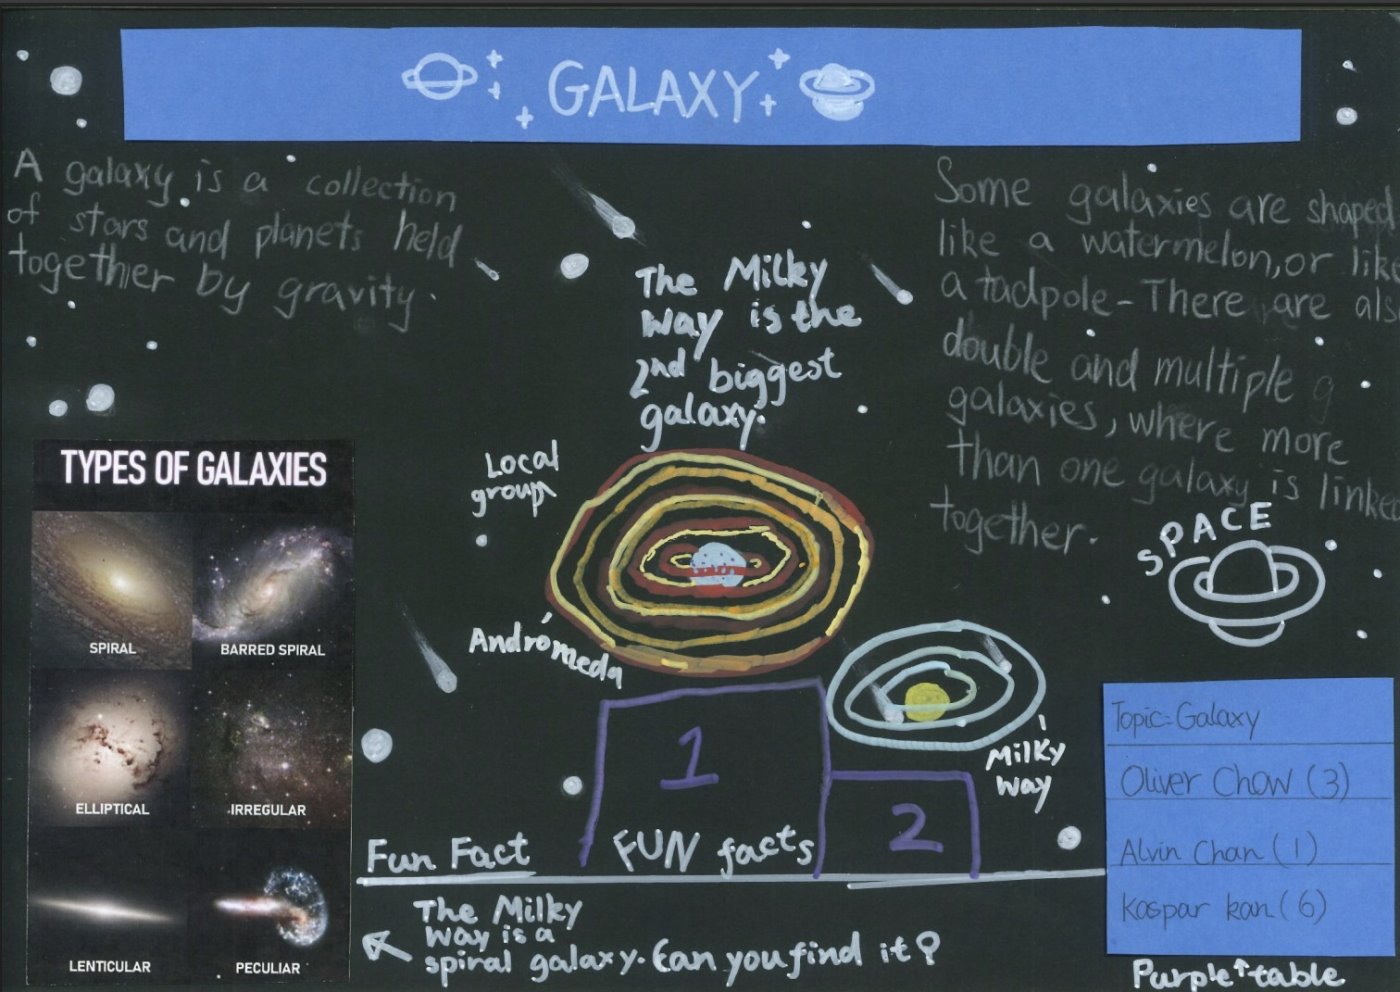 GALAXY
A galaxy is a collection
of stars and planets held
together by gravity.
Some galaxies are shaped
like a watermelon, or like
a tadpole - There are als
double and multiple g
galaxies, where more
than one galaxy is linked
together.
The Milky
Way is the
2nd biggest
galaxy.
Local
group
Andrómeda
Milky
Way
SPACE
TYPES OF GALAXIES
SPIRAL
BARRED SPIRAL
ELLIPTICAL
IRREGULAR
LENTICULAR
PECULIAR
1
2
Fun Fact
FUN facts
The Milky
Way is a
spiral galaxy. Can you find it?
Topic: Galaxy
Oliver Chow (3)
Alvin Chan (1)
Kaspar kan (6)
Purple↑table